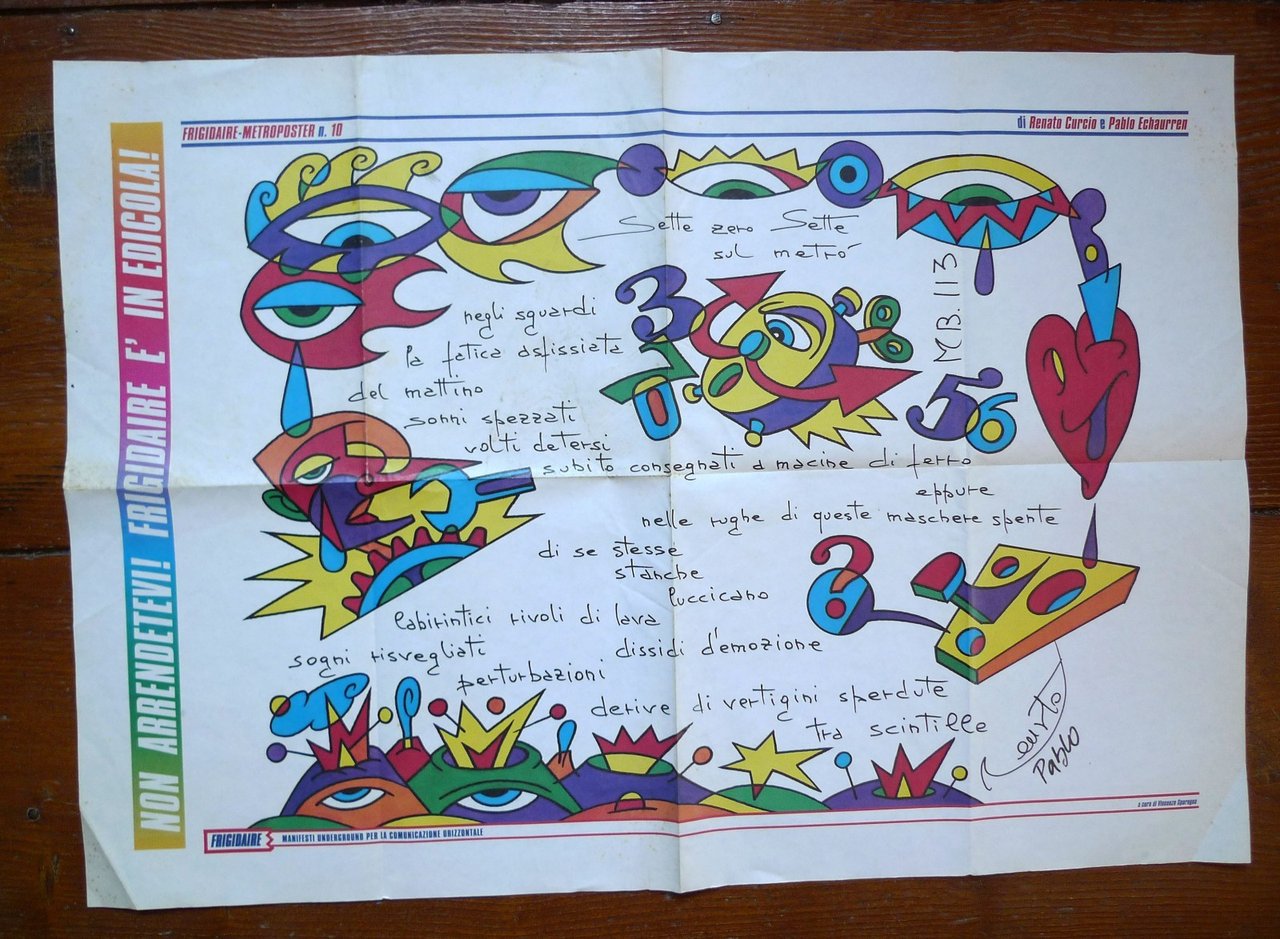 FRIGIDAIRE-METROPOSTER n. 10
di Renato Curcio e Pablo Echaurren
NON ARRENDETEVI! FRIGIDAIRE E' IN EDICOLA!
Sette zero Sette
sul metró
negli sguardi
la fatica asfissiata
del mattino
sonni spezzati
volti detersi
subito consegnati a macine di ferro
eppure
nelle rughe di queste maschere spente
di se stesse
stanche
luccicano
labirintici rivoli di lava
dissidi d'emozione
sogni risvegliati
perturbazioni
derive di vertigini sperdute
tra scintille
3
7
0
56
M.B. 113
Pablo
a cura di Vincenzo Sparagna
FRIGIDAIRE
MANIFESTI UNDERGROUND PER LA COMUNICAZIONE ORIZZONTALE